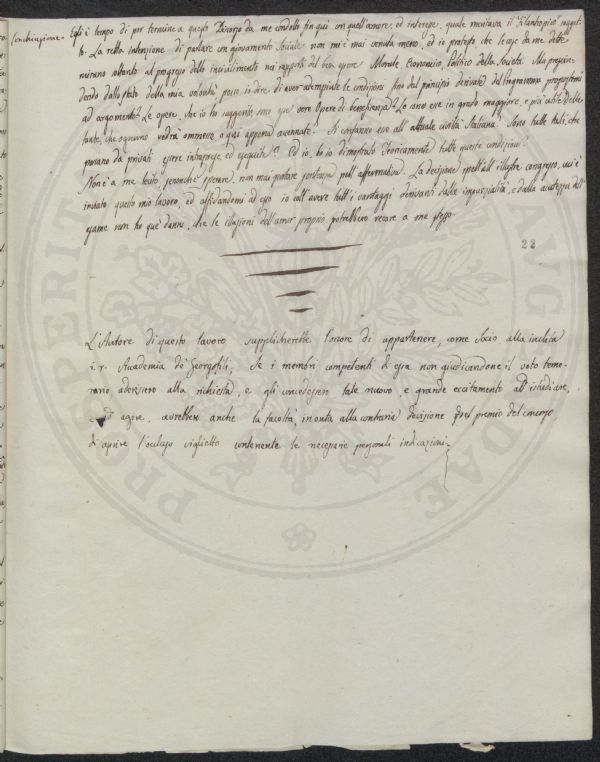 Conchiusione. Egli è tempo di por termine a questo Discorso da me condotto fin qui con quell'amore, ed interesse, quale meritava il filantropico sugget-
to. La retta intenzione di parlare con giovamento Sociale non mi è mai venuta meno, ed io protesto che le cose da me dette
mirano soltanto al progresso dello incivilimento nei rapporti del ben essere Morale, Economico, Politico della Società. Ma prescin-
dendo dallo stato della mia volontà posso io dire di aver adempiute le condizioni fino dal principio derivate dal Programma propostomi
ad argomento? Le opere, che io ho suggerite sono esse vere Opere di beneficenza? Lo sono esse in grado maggiore, e più utile delle
tante, che ognuno vedrà ommesse, o qui appena accennate. Si confanno esse all'attuale civiltà Italiana? Sono tutte tali, che
possano da privati essere intraprese, ed eseguite? Ed io, ho io dimostrato Teoricamente tutte queste condizioni?
Non è a me lecito, senonchè sperare, non mai portare sentenza sull'affermativa. La decisione spett'all'illustre congresso, cui è
inviato questo mio lavoro, ed affidandomi ad esso io coll'avere tutt'i vantaggi derivanti dalla imparzialità, e dalla acutezza dell'
esame non ho que' danni, che le illusioni dell'amor proprio potrebbero recare a me stesso.
22
L'Autore di questo lavoro supplicherebbe l'onore di appartenere, come Socio alla inclita
i. r. Accademia de' Georgofili, Se i membri competenti di essa non giudicandone il voto teme-
rario aderissero alla richiesta, e gli concedessero tale nuovo, e grande eccitamento all'istudiare,
ed agire, avrebbero anche la facoltà, in onta alla contraria decisione pel premio del concorso
di aprire l'occluso viglietto contenente le necessarie personali indicazioni.
PROSPERITATI
AUG
DAE